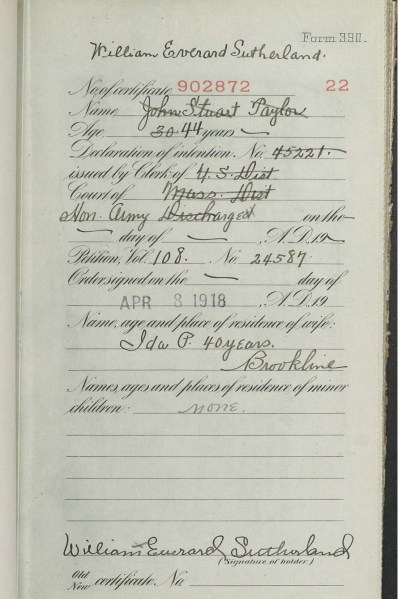 Form 390.
William Everard Sutherland.
No. of certificate 902872 22
Name John Stuart Paylor
Age 30. 44 years
Declaration of intention, No. 45221.
issued by Clerk of U. S. Dist
Court of Mass. Dist
Hon. Army Discharged on the
day of , A.D. 19
Petition, Vol. 108. No. 24587.
Order signed on the day of
APR 8 1918 , A.D. 19
Name, age and place of residence of wife:
Ida P. 40 years.
Brookline
Names, ages and places of residence of minor
children: none.
William Everard Sutherland
(Signature of holder)
Old
New certificate. No.